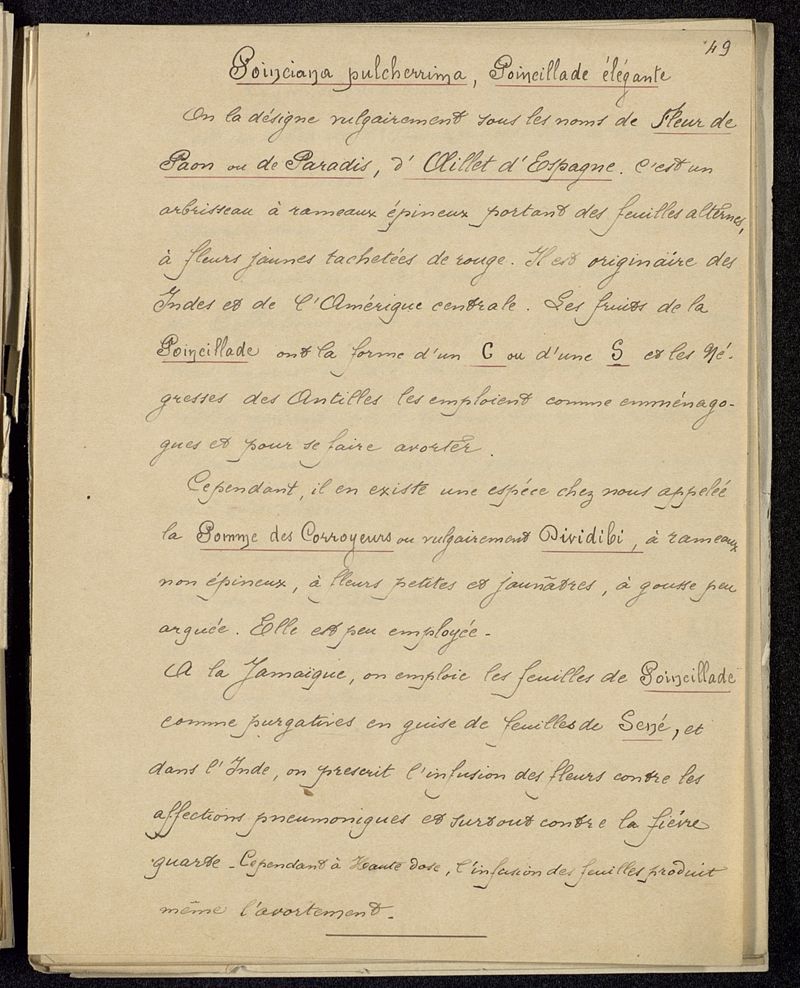 49
Poinciana pulcherrima, Poincillade élégante
On la désigne vulgairement sous les noms de Fleur de
Paon ou de Paradis, d'Œillet d'Espagne. C'est un
arbrisseau à rameaux épineux portant des feuilles alternes,
à fleurs jaunes tachetées de rouge. Il est originaire des
Indes et de l'Amérique centrale. Les fruits de la
Poincillade ont la forme d'un C ou d'une S et les Né-
gresses des Antilles les emploient comme emménago-
gues et pour se faire avorter.
Cependant, il en existe une espéce chez nous appelée
la Pomme des Corroyeurs ou vulgairement Dividibi, à rameaux
non épineux, à fleurs petites et jaunâtres, à gousse peu
arquée. Elle est peu employée.
A la Jamaïque, on emploie les feuilles de Poincillade
comme purgatives en guise de feuilles de Sené, et
dans l'Inde, on prescrit l'infusion des fleurs contre les
affections pneumoniques et surtout contre la fiévre
quarte. Cependant à Haute dose, l'infusion des feuilles produit
même l'avortement.